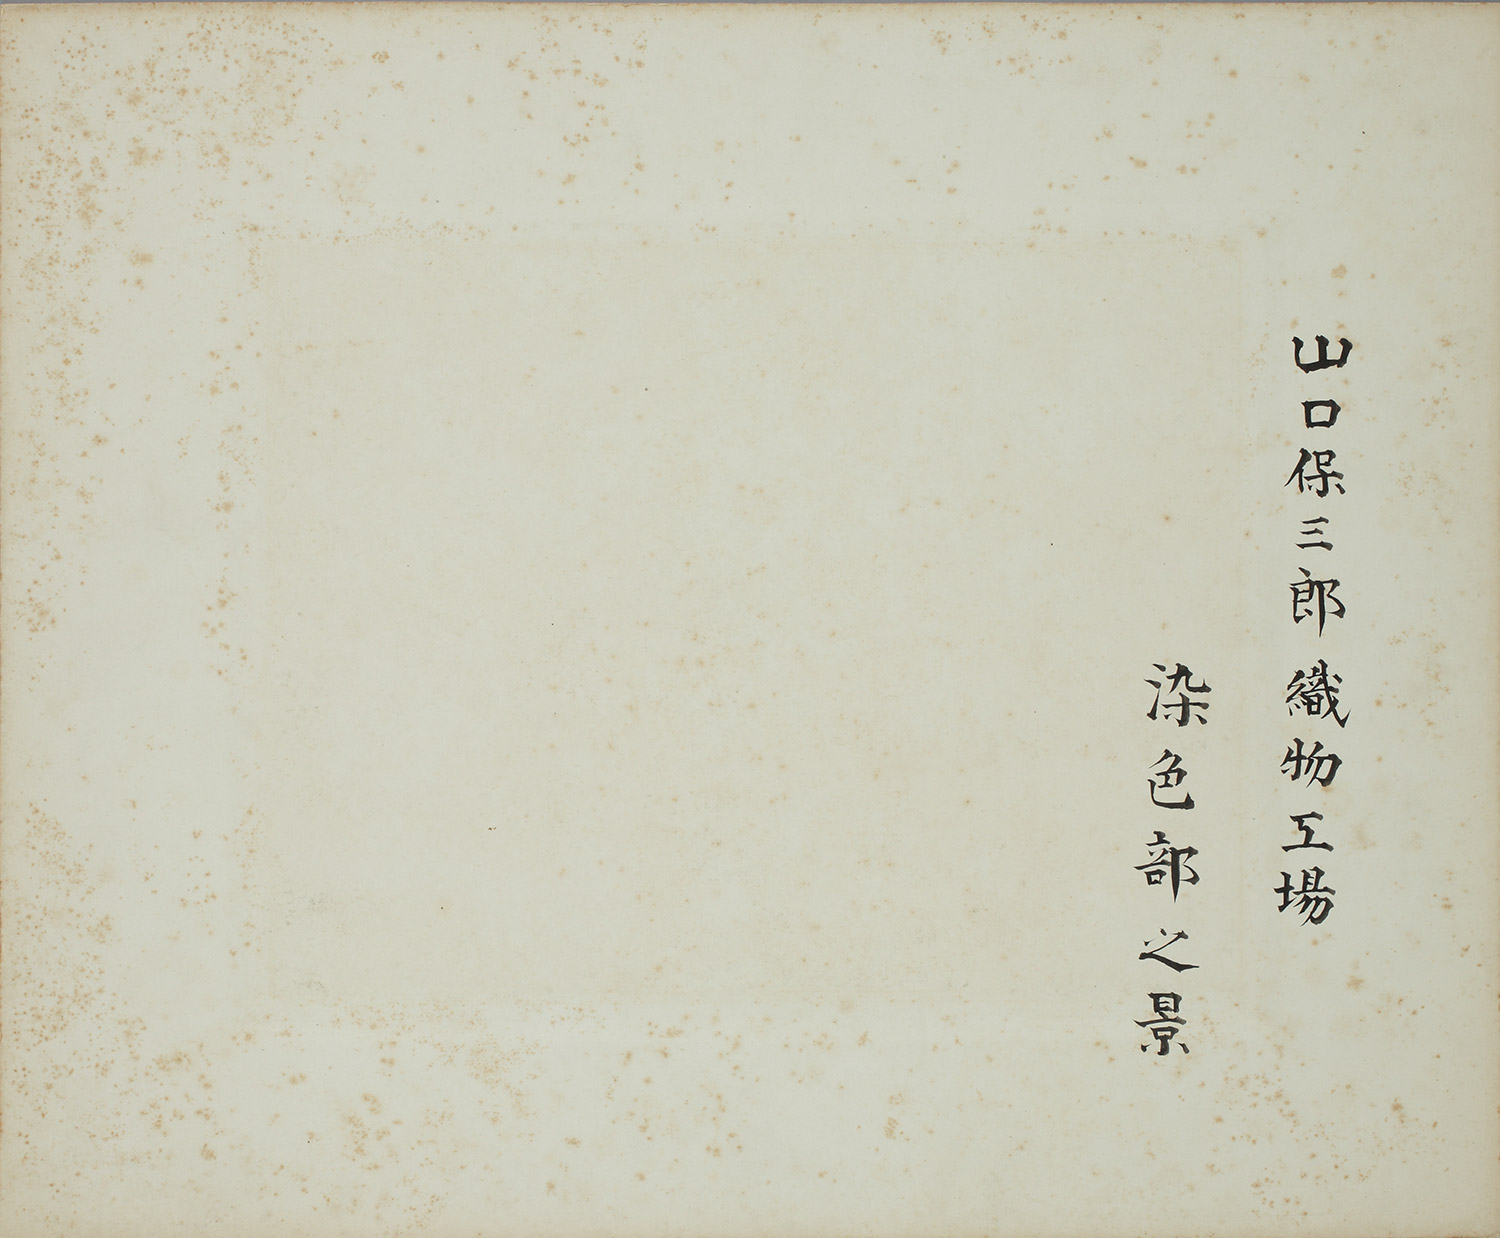 山口保三郎織物工場
染色部之景